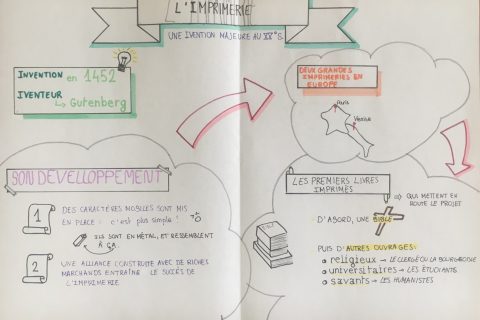 L'IMPRIMERIE
UNE IVENTION MAJEURE AU XV°S.
INVENTION en 1452
IVENTEUR
Gutenberg
DEUX GRANDES
IMPRIMERIES EN
EUROPE
Paris
Venise
SON DEVELLOPPEMENT
1 DES CARACTÈRES MOBILES SONT MIS
EN PLACE : c'est plus simple !
ILS SONT EN MÉTAL, ET RESSEMBLENT
À ÇA
2 UNE ALLIANCE CONSTRUITE AVEC DE RICHES
MARCHANDS ENTRAÎNE LE SUCCÈS DE
L'IMPRIMERIE
LES PREMIERS LIVRES
IMPRIMÉS
QUI METTENT EN
ROUTE LE PROJET
D'ABORD, UNE BIBLE
PUIS D'AUTRES OUVRAGES:
religieux → LE CLERGÉ OU LA BOURGEOISIE
universitaires → LES ÉTUDIANTS
savants → LES HUMANISTES